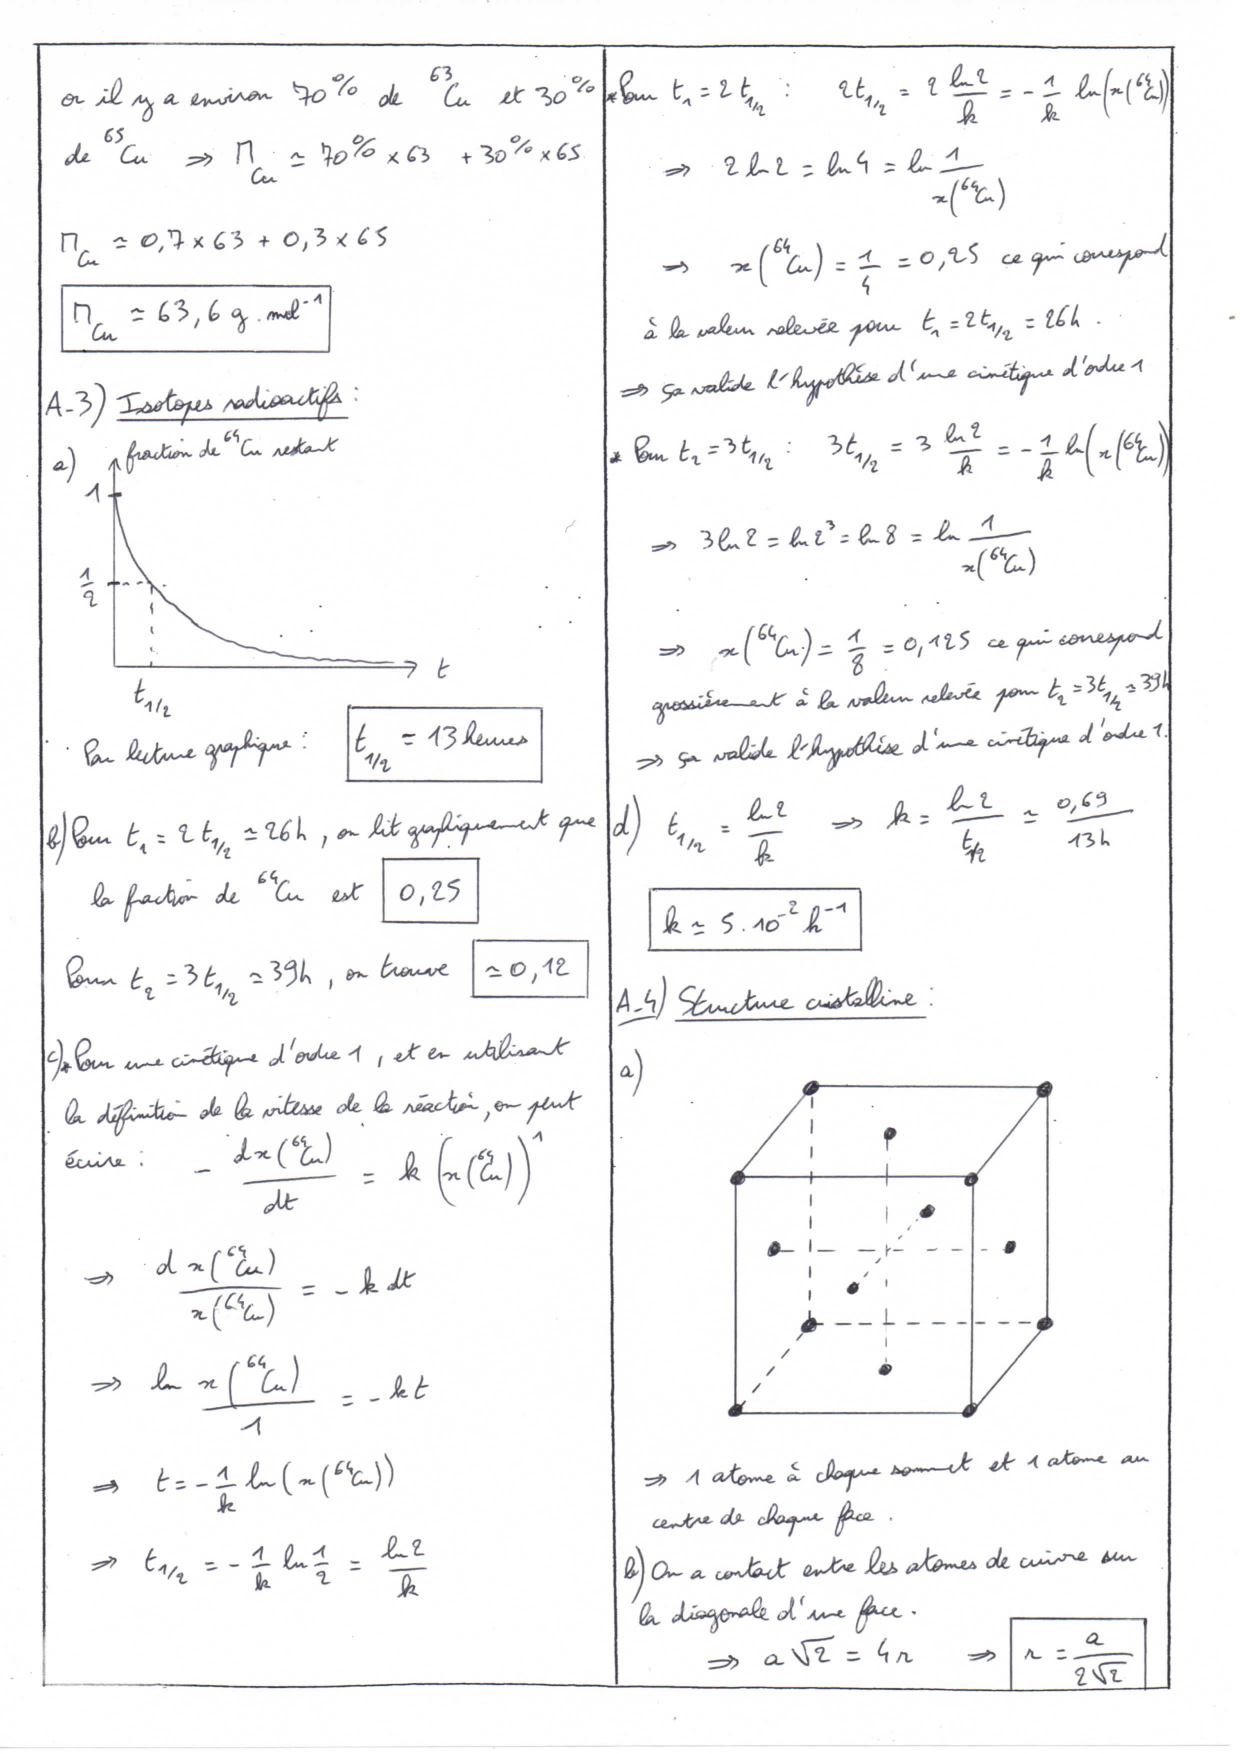 or il y a environ 70% de ⁶³Cu et 30%
de ⁶⁵Cu ⇒ M_Cu ≃ 70% × 63 + 30% × 65
M_Cu ≃ 0,7 × 63 + 0,3 × 65
M_Cu ≃ 63,6 g.mol⁻¹
A-3) Isotopes radioactifs :
a) fraction de ⁶⁴Cu restant
1
1/2
t
t_1/2
Par lecture graphique : t_1/2 = 13 heures
b) Pour t₁ = 2 t_1/2 ≃ 26h, on lit graphiquement que
la fraction de ⁶⁴Cu est 0,25
Pour t₂ = 3 t_1/2 ≃ 39h, on trouve ≃ 0,12
c) * Pour une cinétique d'ordre 1, et en utilisant
la définition de la vitesse de la réaction, on peut
écrire : - dx(⁶⁴Cu)/dt = k (x(⁶⁴Cu))¹
⇒ dx(⁶⁴Cu)/x(⁶⁴Cu) = - k dt
⇒ ln x(⁶⁴Cu)/1 = - kt
⇒ t = - 1/k ln(x(⁶⁴Cu))
⇒ t_1/2 = - 1/k ln 1/2 = ln2/k
* Pour t₁ = 2 t_1/2 : 2t_1/2 = 2 ln2/k = - 1/k ln(x(⁶⁴Cu))
⇒ 2 ln 2 = ln 4 = ln 1/x(⁶⁴Cu)
⇒ x(⁶⁴Cu) = 1/4 = 0,25 ce qui correspond
à la valeur relevée pour t₁ = 2t_1/2 = 26h.
⇒ ça valide l'hypothèse d'une cinétique d'ordre 1
* Pour t₂ = 3t_1/2 : 3t_1/2 = 3 ln2/k = - 1/k ln(x(⁶⁴Cu))
⇒ 3 ln 2 = ln 2³ = ln 8 = ln 1/x(⁶⁴Cu)
⇒ x(⁶⁴Cu) = 1/8 = 0,125 ce qui correspond
grossièrement à la valeur relevée pour t₂ = 3t_1/2 ≃ 39h
⇒ ça valide l'hypothèse d'une cinétique d'ordre 1.
d) t_1/2 = ln2/k ⇒ k = ln2/t_1/2 ≃ 0,69/13h
k ≃ 5.10⁻² h⁻¹
A-4) Structure cristalline :
a)
⇒ 1 atome à chaque sommet et 1 atome au
centre de chaque face.
b) On a contact entre les atomes de cuivre sur
la diagonale d'une face.
⇒ a√2 = 4r ⇒ r = a/2√2